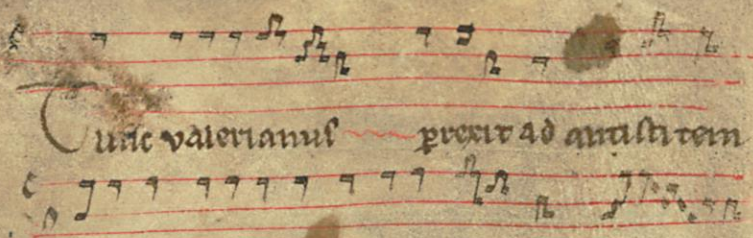 Tunc valerianus perrexit ad antistitem